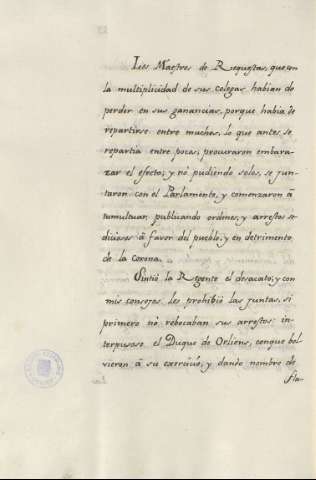 Los Maestres de Requestas, que con
la multiplicidad de sus colegas habian de
perder en sus ganancias, porque habia de
repartirse entre muchas, lo que antes se
repartia entre pocas; procuraron embara-
zar el efecto; y nó pudiendo solos, se jun-
taron con el Parlamento, y comenzaron á
tumultuar, publicando ordnes, y arrestos se-
diciosos á favor del pueblo, y en detrimento
de la corona.
Sintió la Regente el desacato, y con
mis consejos, les prohibió las juntas, si
primero nó rebocaban sus arrestos: in-
terpusose el Duque de Orliens, conque bol-
vieron á su exercicio, y dando nombre de
fla-